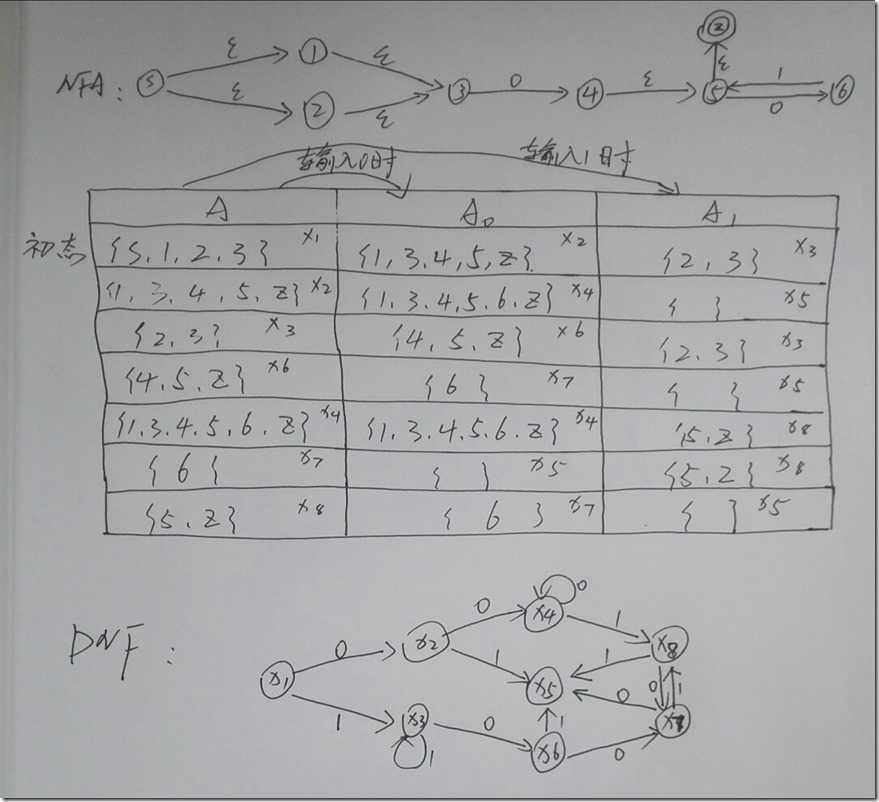 NFA: S ε 1 ε 3 0 4 ε 5 ε Z 1 0 6
ε 2 ε
当输入0时 当输入1时
A A₀ A₁
初态 {S.1.2.3} x₁ {1,3.4,5,Z} x₂ {2,3} x₃
{1,3.4,5.Z} x₂ {1.3.4.5.6.Z} x₄ { } x₅
{2,3} x₃ {4.5.Z} x₆ {2.3} x₃
{4.5.Z} x₆ {6} x₇ { } x₅
{1.3.4.5.6.Z} x₄ {1.3.4.5.6.Z} x₄ {5.Z} x₈
{6} x₇ { } x₅ {5.Z} x₈
{5.Z} x₈ {6} x₇ { } x₅
DNF:
x₁ 0 x₂ 0 x₄ 0 1 x₈
1 x₅ 1 0 1
1 x₃ 1 0 x₆ 1 0 0 x₇